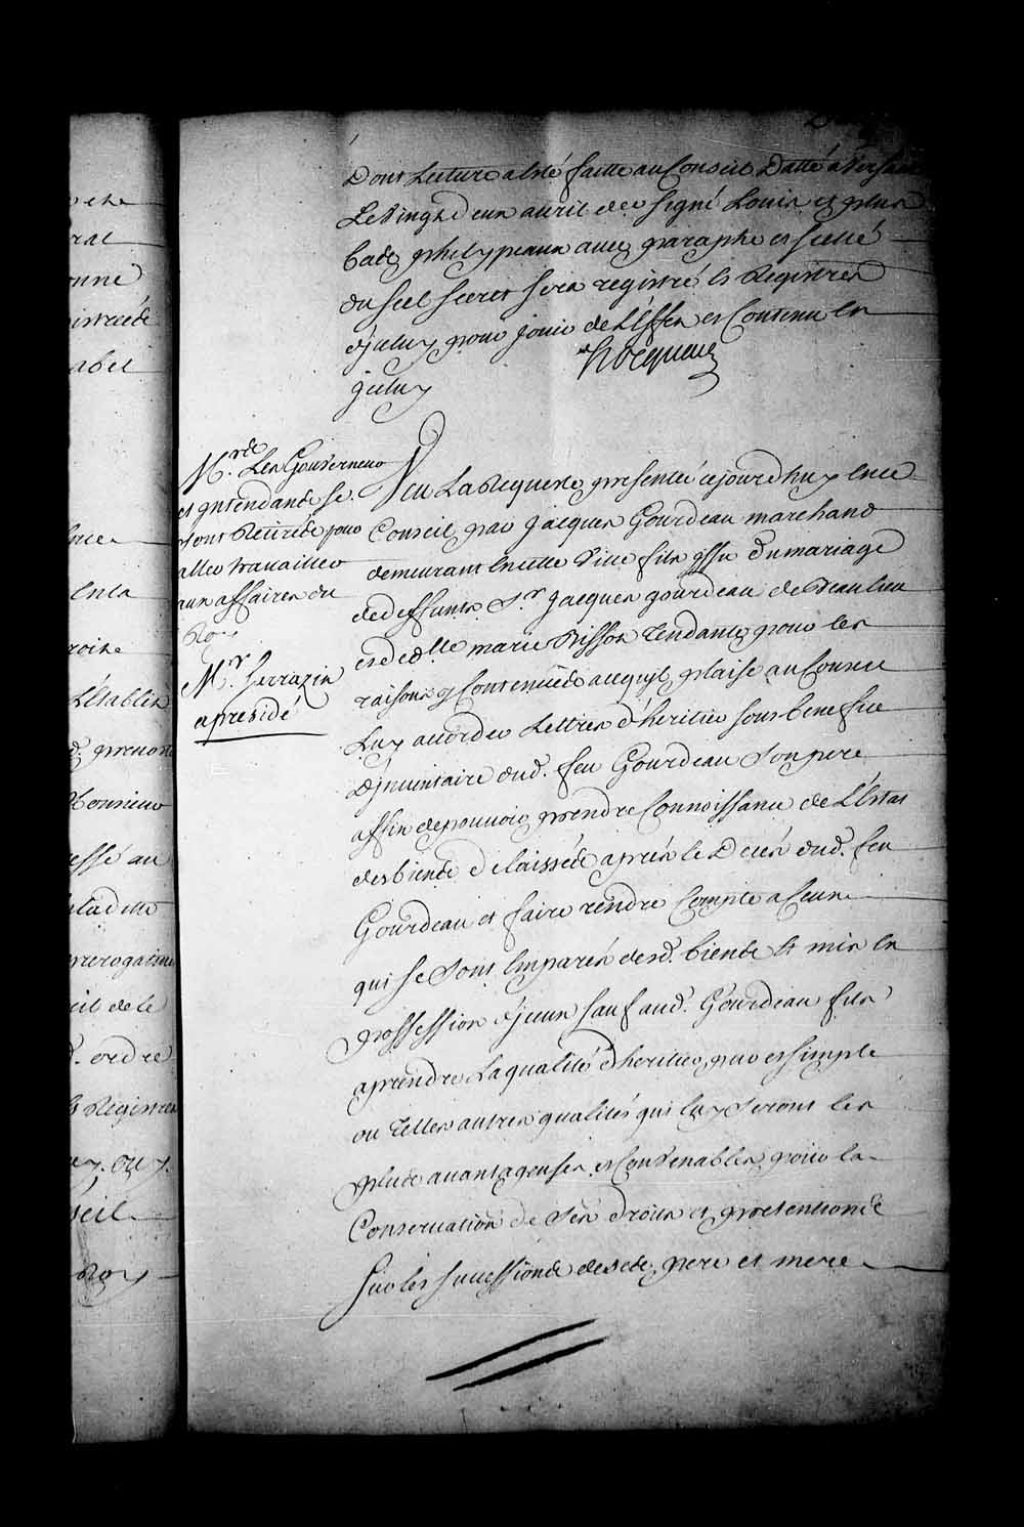 Dont Lecture a Esté faitte au Conseil Datté a Versail
Le Vingt d'eux auril der Signé Louis et plus
bas Phelypeaux auec paraphe et scellé
du Scel Secret Sera registré és Registres
d'jceluy pour jouir de l'Effet et Contenu en
jceluy
Hocquart
Mrs. Les Gouuerneur
et jntendant se
sont Retirés pour
aller trauailler
aux affaires du
Roy
Mr. Sarrazin
a presidé
Veu La Requeste presentée cejourd'huy En ce
Conseil par Jacques Gourdeau marchand
demeurant En cette Ville fils yssu du mariage
de deffunts Sr. Jacques gourdeau de Beaulieu
et de dlle marie Bisson Tendante pour les
raisons y Contenües acequ'jl plaise au Conseil
Luy accorder Lettres d'heritier sous benefice
d'jnuentaire dud. feu Gourdeau Son pere
affin de pouuoir prendre Connoissance de L'Estat
des biens delaissés aprés le Decés dud. feu
Gourdeau et faire rendre Compte a Ceux
qui se Sont Emparés desd. biens Et mis En
possession d'jceux sauf aud. Gourdeau fils
a prendre La qualité d'heritier pur et simple
ou Telles autres qualités qui luy Seront les
plus auantageuses et Conuenables pour la
Conseruation de Ses droits et pretentions
Sur les successions de ses pere et mere
ete
ral
onne
abel
En la
L'établir
Monsieur
essé au
ladite
prerogatiues
eil de le
. ordre
és Registres
seil
Roy